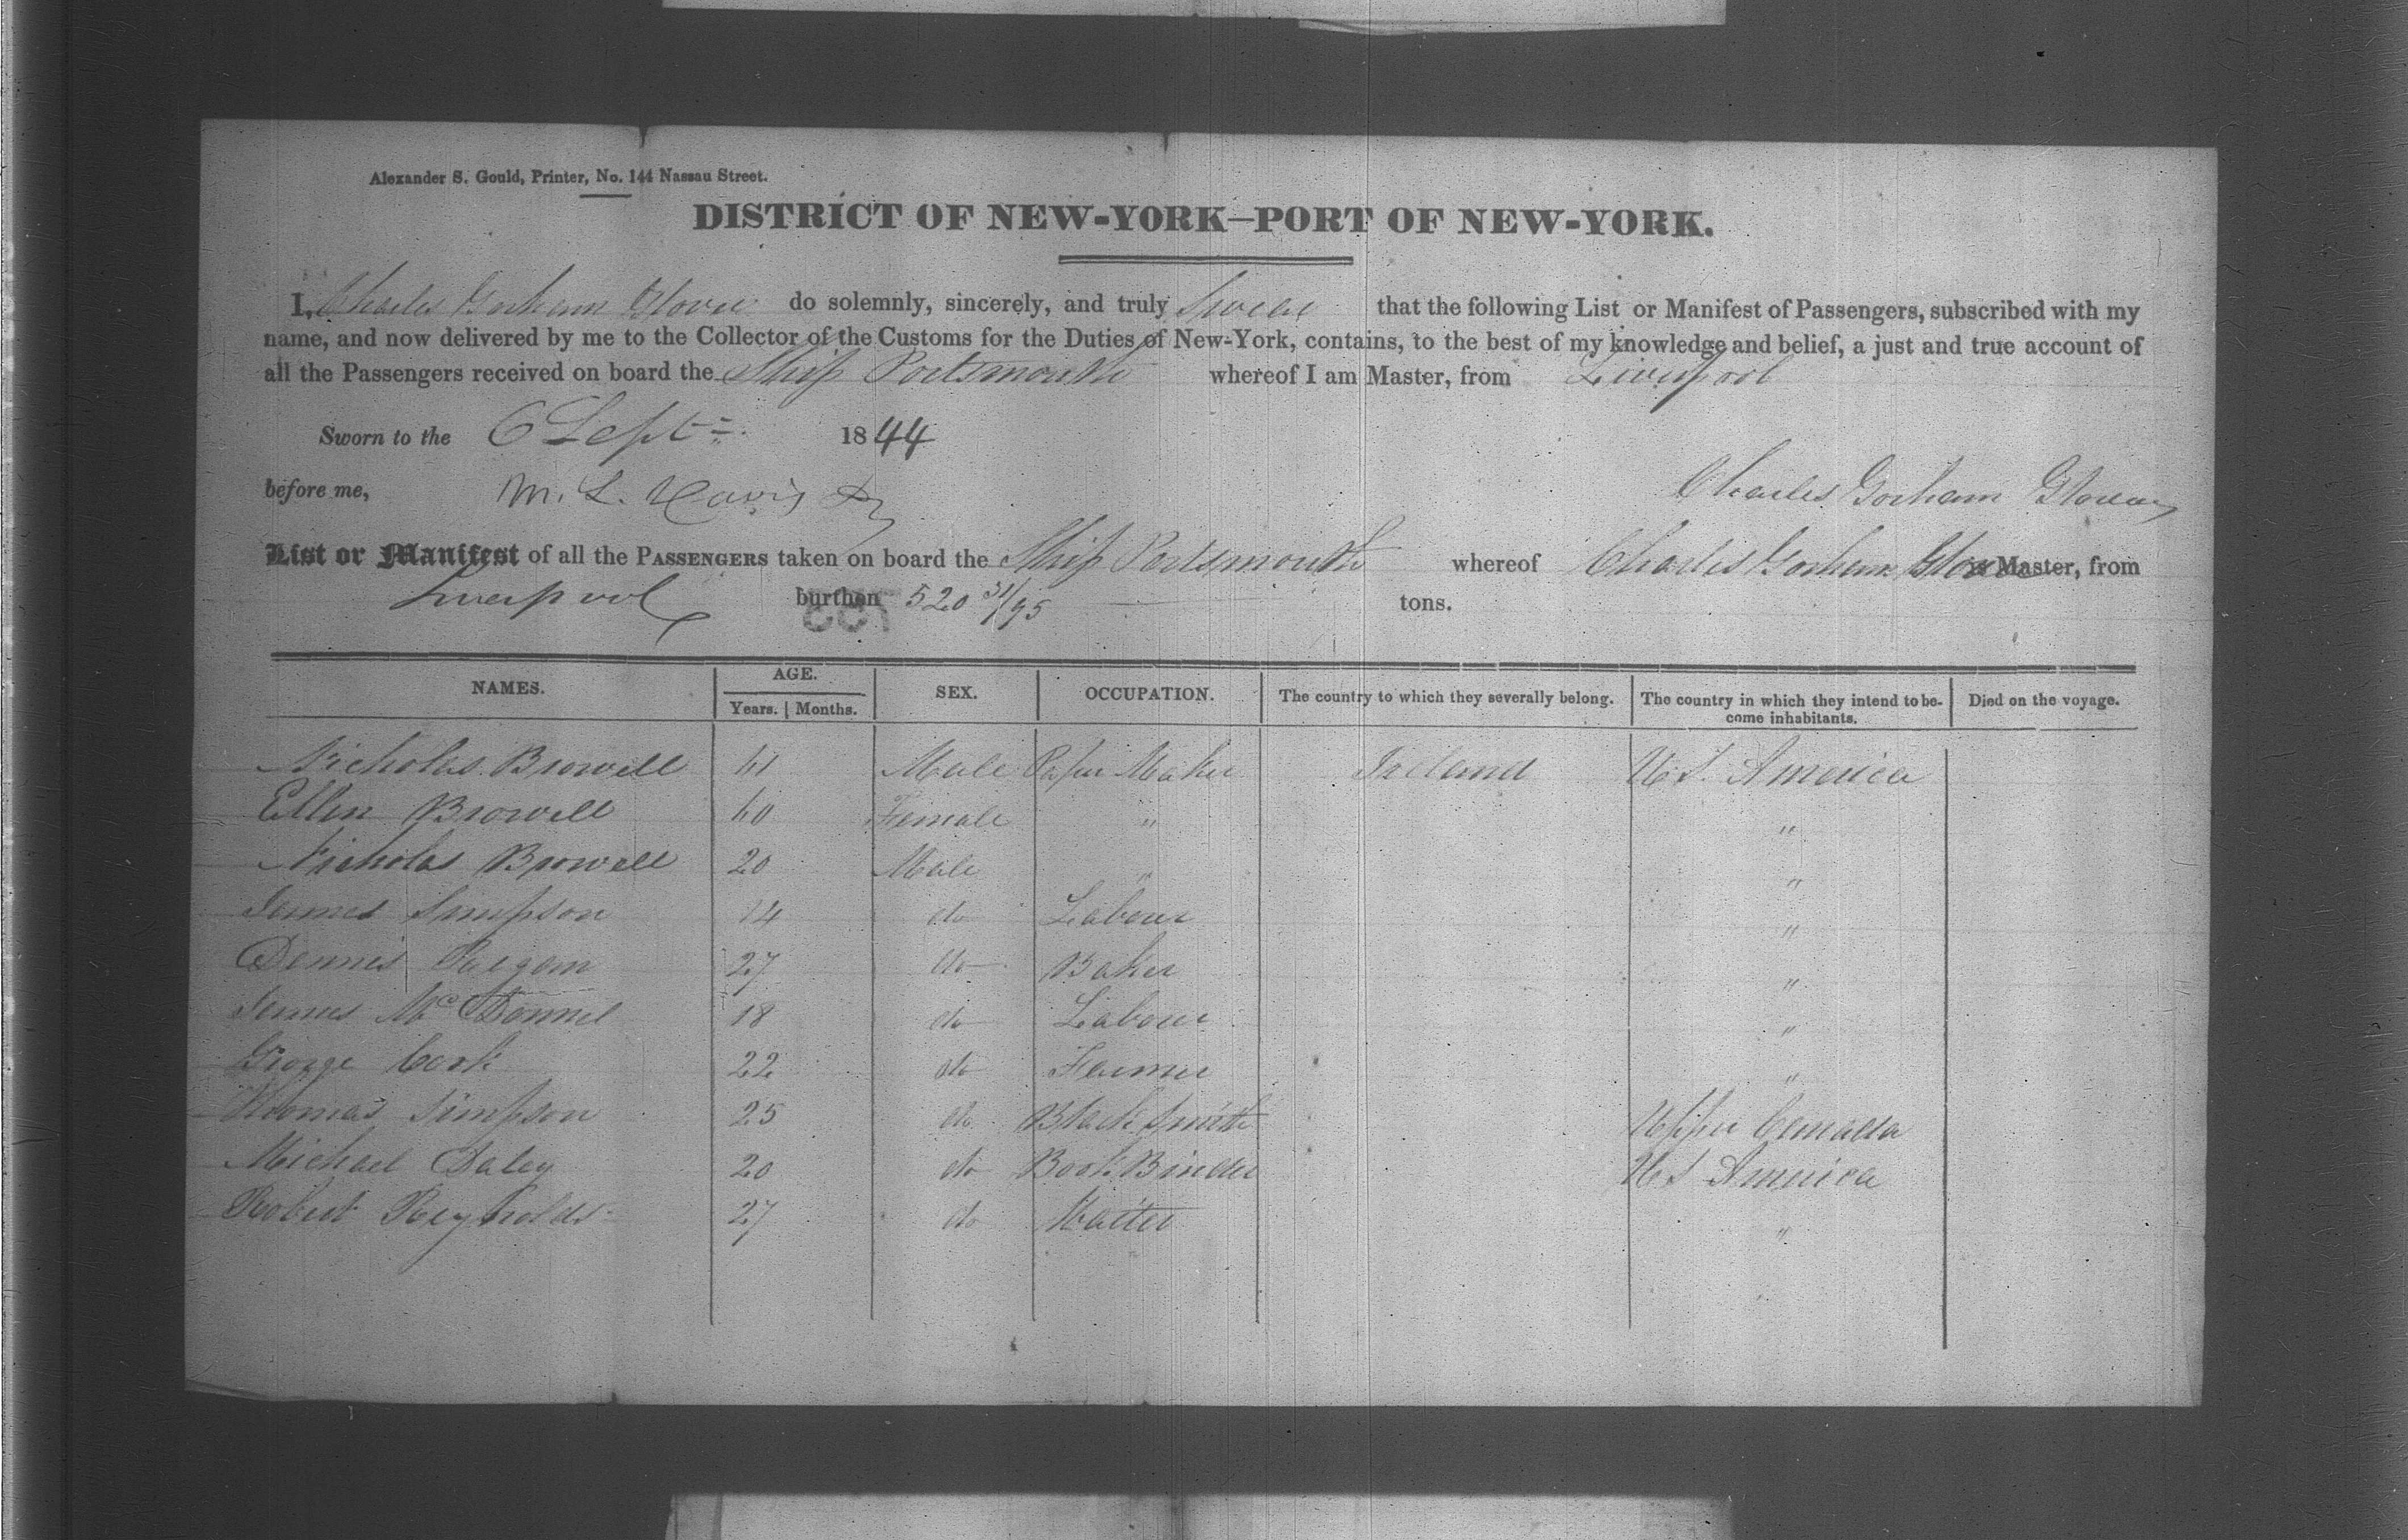 Alexander S. Gould, Printer, No. 144 Nassau Street.
DISTRICT OF NEW-YORK—PORT OF NEW-YORK.
I, Charles Gorham Glover do solemnly, sincerely, and truly Swear that the following List or Manifest of Passengers, subscribed with my
name, and now delivered by me to the Collector of the Customs for the Duties of New-York, contains, to the best of my knowledge and belief, a just and true account of
all the Passengers received on board the Ship Portsmouth whereof I am Master, from Liverpool
Sworn to the 6 Sept 1844
before me, M. L. Davis
Charles Gorham Glover
List or Manifest of all the PASSENGERS taken on board the Ship Portsmouth whereof Charles Gorham Glover Master, from
Liverpool burthen 520 31/95 tons.
NAMES. AGE. SEX. OCCUPATION. The country to which they severally belong. The country in which they intend to be- Died on the voyage.
Years. Months. come inhabitants.
Nicholas Browell 61 Male Paper Maker Ireland U S. America
Ellen Browell 60 Female " "
Nicholas Browell 20 Male " "
James Simpson 14 do Labour "
Dennis 27 do Baker "
James McDonnel 18 do Labour "
George Cork 22 do Farmer "
Thomas Simpson 25 do Black Smith Upper Canada
Michael Daley 20 do Book Binder U S America
Robert Reynolds 27 do "